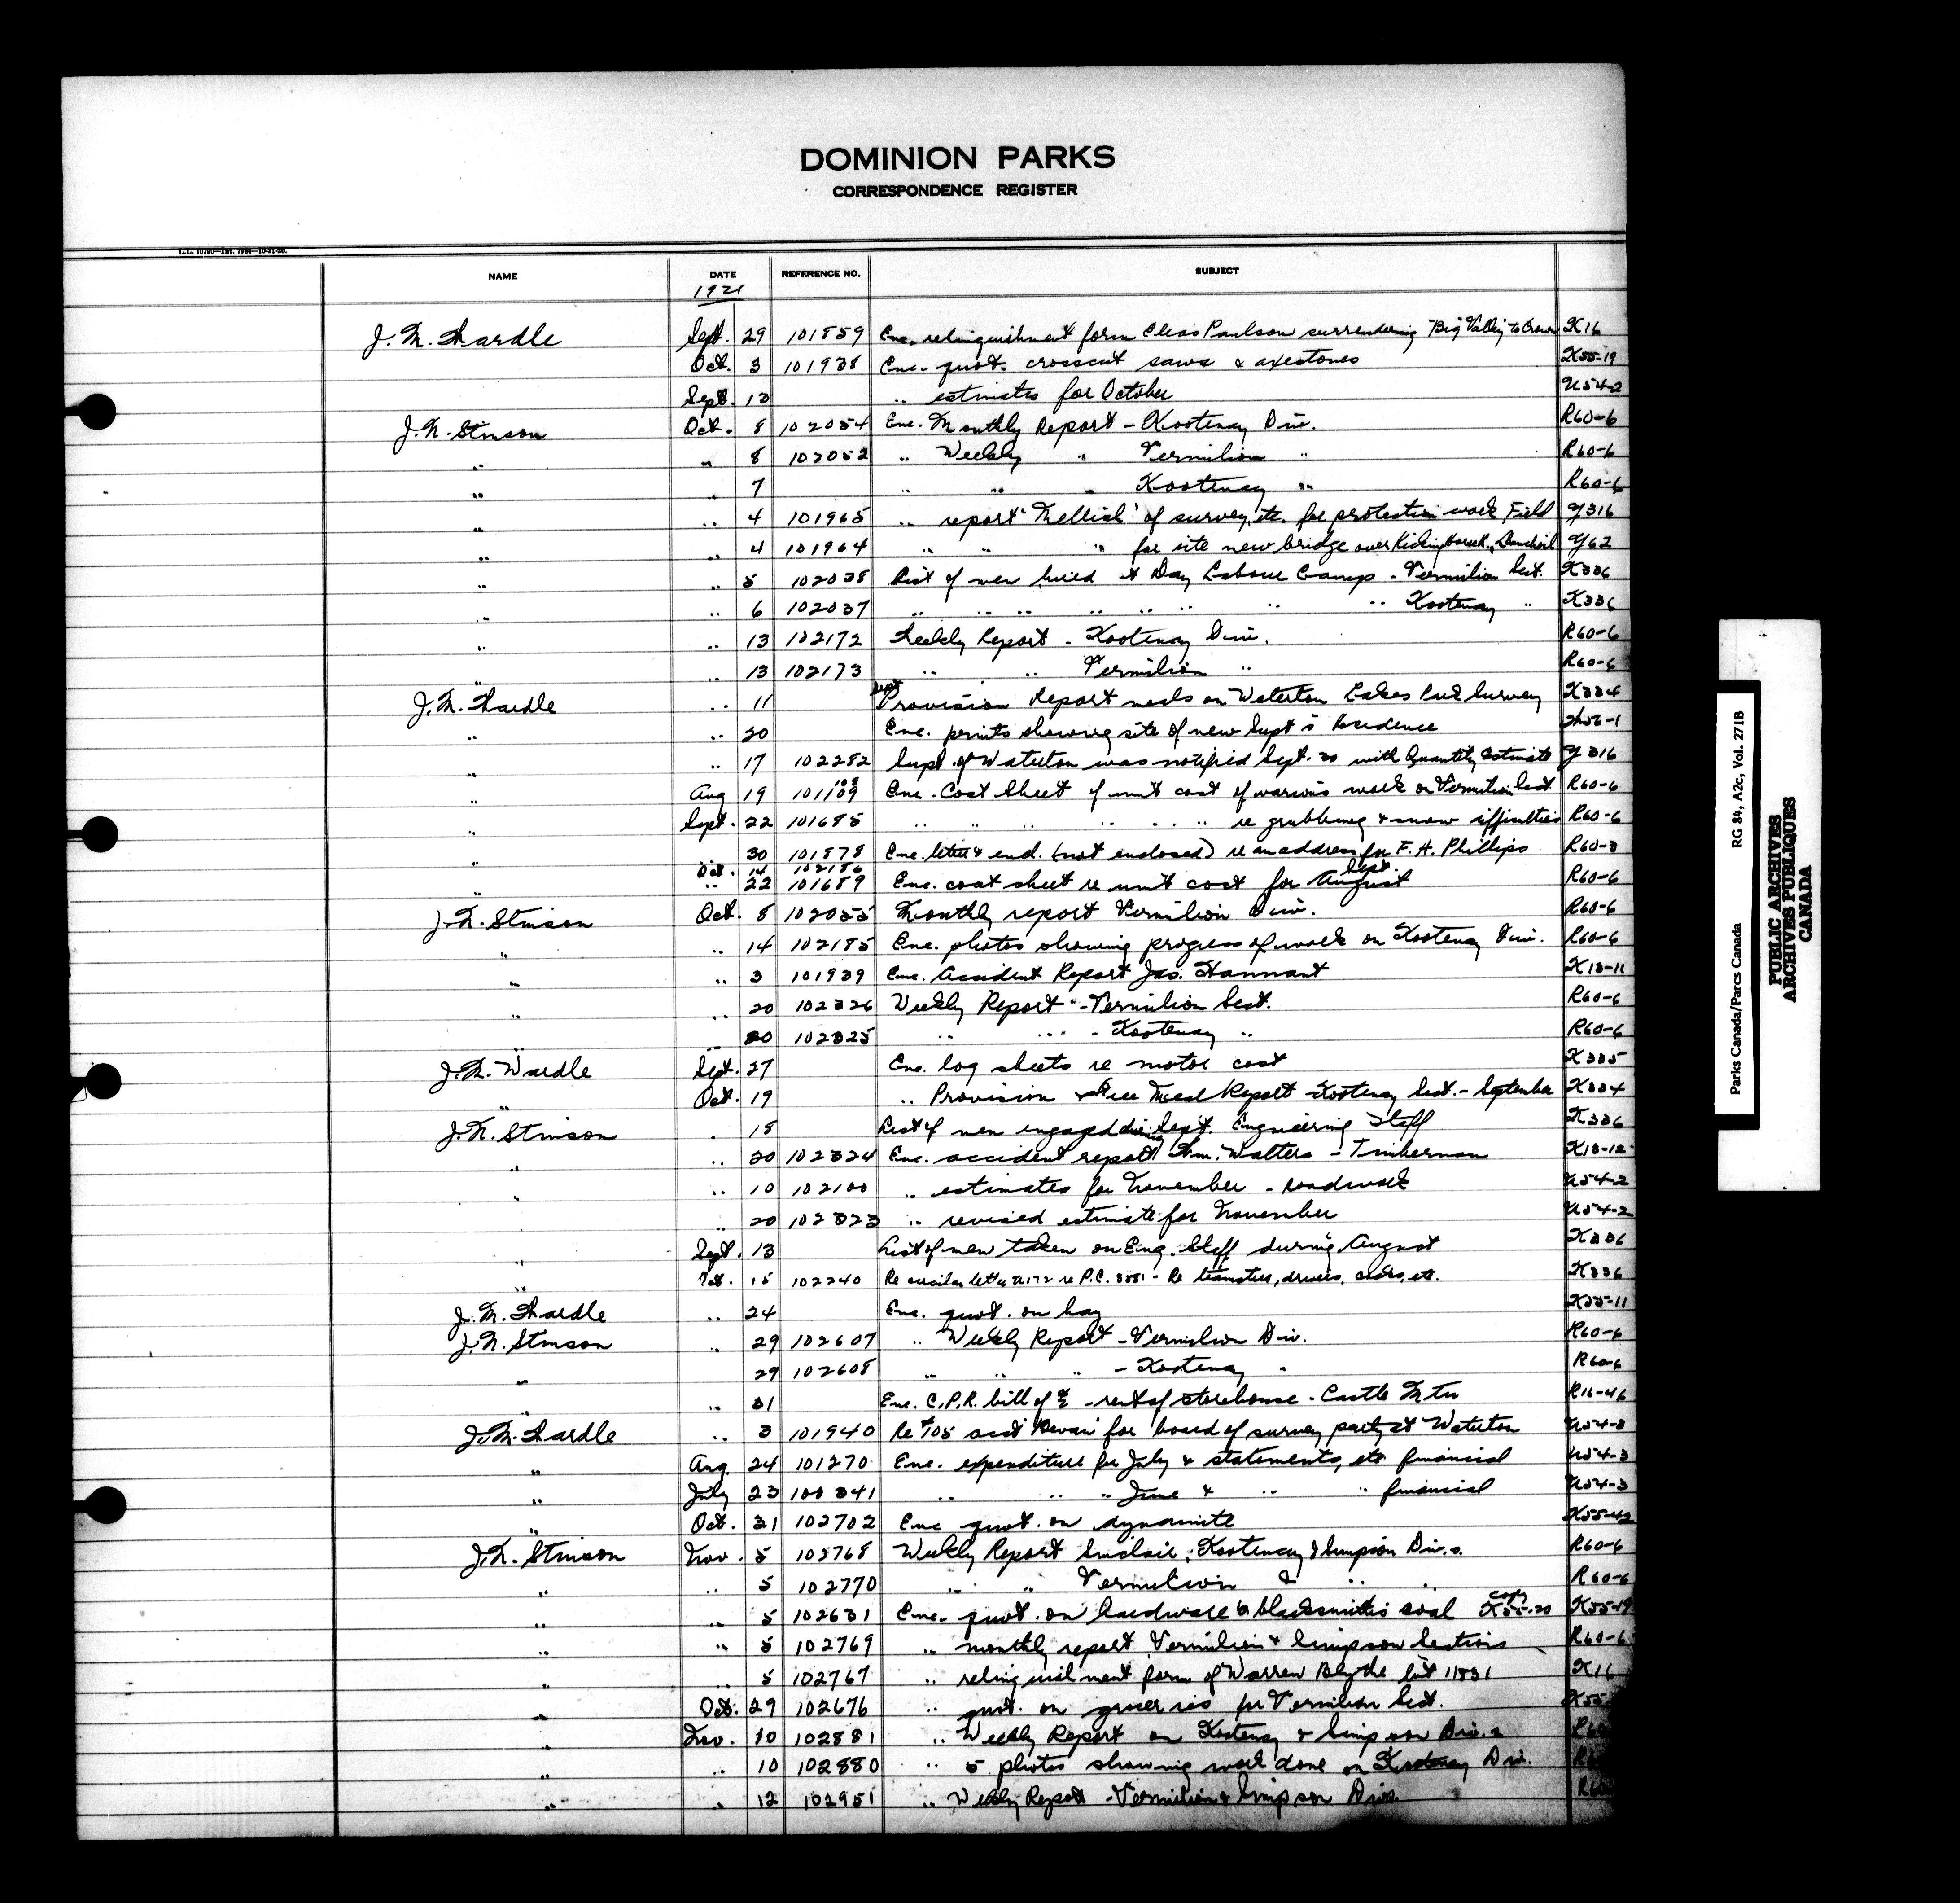 DOMINION PARKS
CORRESPONDENCE REGISTER
NAME DATE REFERENCE NO. SUBJECT
1921
J. M. Wardle Sept. 29 101859 Enc. relinquishment form Paulson surrendering "Big Valley" to Crown K16
Oct. 3 101938 Enc. quot. crosscut saws & axestones K55-19
Sept. 13 .. estimates for October U54-2
J. N. Stinson Oct. 8 102054 Enc. Monthly Report - Kootenay Div. R60-6
" " 8 102052 .. Weekly " Vermilion " R60-6
" " 7 " " " Kootenay " R60-6
" " 4 101965 .. report 'Mellish' of survey, etc. for protection work Field Y316
" " 4 101964 " " " for site new bridge over Y62
" " 5 102038 List of men hired at Day Labour Camps - Vermilion Sect. K336
" " 6 102037 " " " " " " " " Kootenay " K336
" " 13 102172 Weekly Report - Kootenay Div. R60-6
" " 13 102173 " " Vermilion " R60-6
J. M. Wardle " 11 Provision Report meals on Waterton Lakes Park Survey K334
" " 20 Enc. prints showing site of new Supt's Residence
" " 17 102282 Supt. of Waterton was notified Sept. 20 with Quantity Estimate Y316
" Aug 19 101109 108 Enc. Cost Sheet of unit cost of various work on Vermilion Sect. R60-6
" Sept. 22 101685 " " " " " " re grubbing & snow difficulties R60-6
30 101878 Enc. letter & encl. (not enclosed) re an address for F. H. Phillips R60-3
" Oct. 14 102186 Sept.
" " 22 101689 Enc. cost sheet re unit cost for August R60-6
J. N. Stinson Oct. 8 102055 Monthly report Vermilion Div. R60-6
" " 14 102185 Enc. photos showing progress of work on Kootenay Div. R60-6
" " 3 101939 Enc. Accident Report Jas. Hannant K18-11
" " 20 102326 Weekly Report - Vermilion Sect. R60-6
" " 20 102325 " " - Kootenay " R60-6
J. M. Wardle Sept. 27 Enc. log sheets re motor cost K335
" Oct. 19 .. Provision & Free Meal Report - Kootenay Sect. - September K334
J. N. Stinson " 18 List of men engaged during Sept. Engineering Staff K336
" " 20 102324 Enc. accident report Wm. Walters - Timberman K18-12
" " 10 102100 .. estimates for November - roadwork U54-2
" 20 102323 .. revised estimate for November U54-2
" Sept. 13 List of men taken on Eng. Staff during August K336
" Oct. 15 102240 Re circular letter re P.C. - Re teamsters, drivers, cooks, etc. K336
J. M. Wardle " 24 Enc. quot. on hay K55-11
J. N. Stinson " 29 102607 .. Weekly Report - Vermilion Div. R60-6
" 29 102608 " " " - Kootenay " R60-6
" " 31 Enc. C.P.R. bill of - rent of storehouse - Castle Mtn R16-46
J. M. Wardle " 3 101940 Re #705 acct for board of survey party at Waterton U54-3
" Aug. 24 101270 Enc. expenditure for July & statements, etc. financial U54-3
" July 23 100341 " " " June & " " financial U54-3
" Oct. 31 102702 Enc quot. on dynamite K55-42
J. N. Stinson Nov. 5 102768 Weekly Report Sinclair, Kootenay & Simpson Div.s. R60-6
" " 5 102770 " " Vermilion & " " R60-6
" " 5 102631 Enc. quot. on hardware & blacksmith's coal copy K55-20 K55-19
" " 5 102769 .. monthly report Vermilion & Simpson Sections R60-6
" " 5 102767 .. relinquishment form of Warren Blythe lot 11831 K16
" Oct. 29 102676 .. quot. on groceries for Vermilion Sect. K55
" Nov. 10 102881 .. Weekly Report on Kootenay & Simpson Div.s
" " 10 102880 .. 5 photos showing work done on Kootenay Div.
" " 12 102951 .. Weekly Report - Vermilion & Simpson Divs.
Parks Canada/Parcs Canada RG 84, A2c, Vol. 271B
PUBLIC ARCHIVES
ARCHIVES PUBLIQUES
CANADA